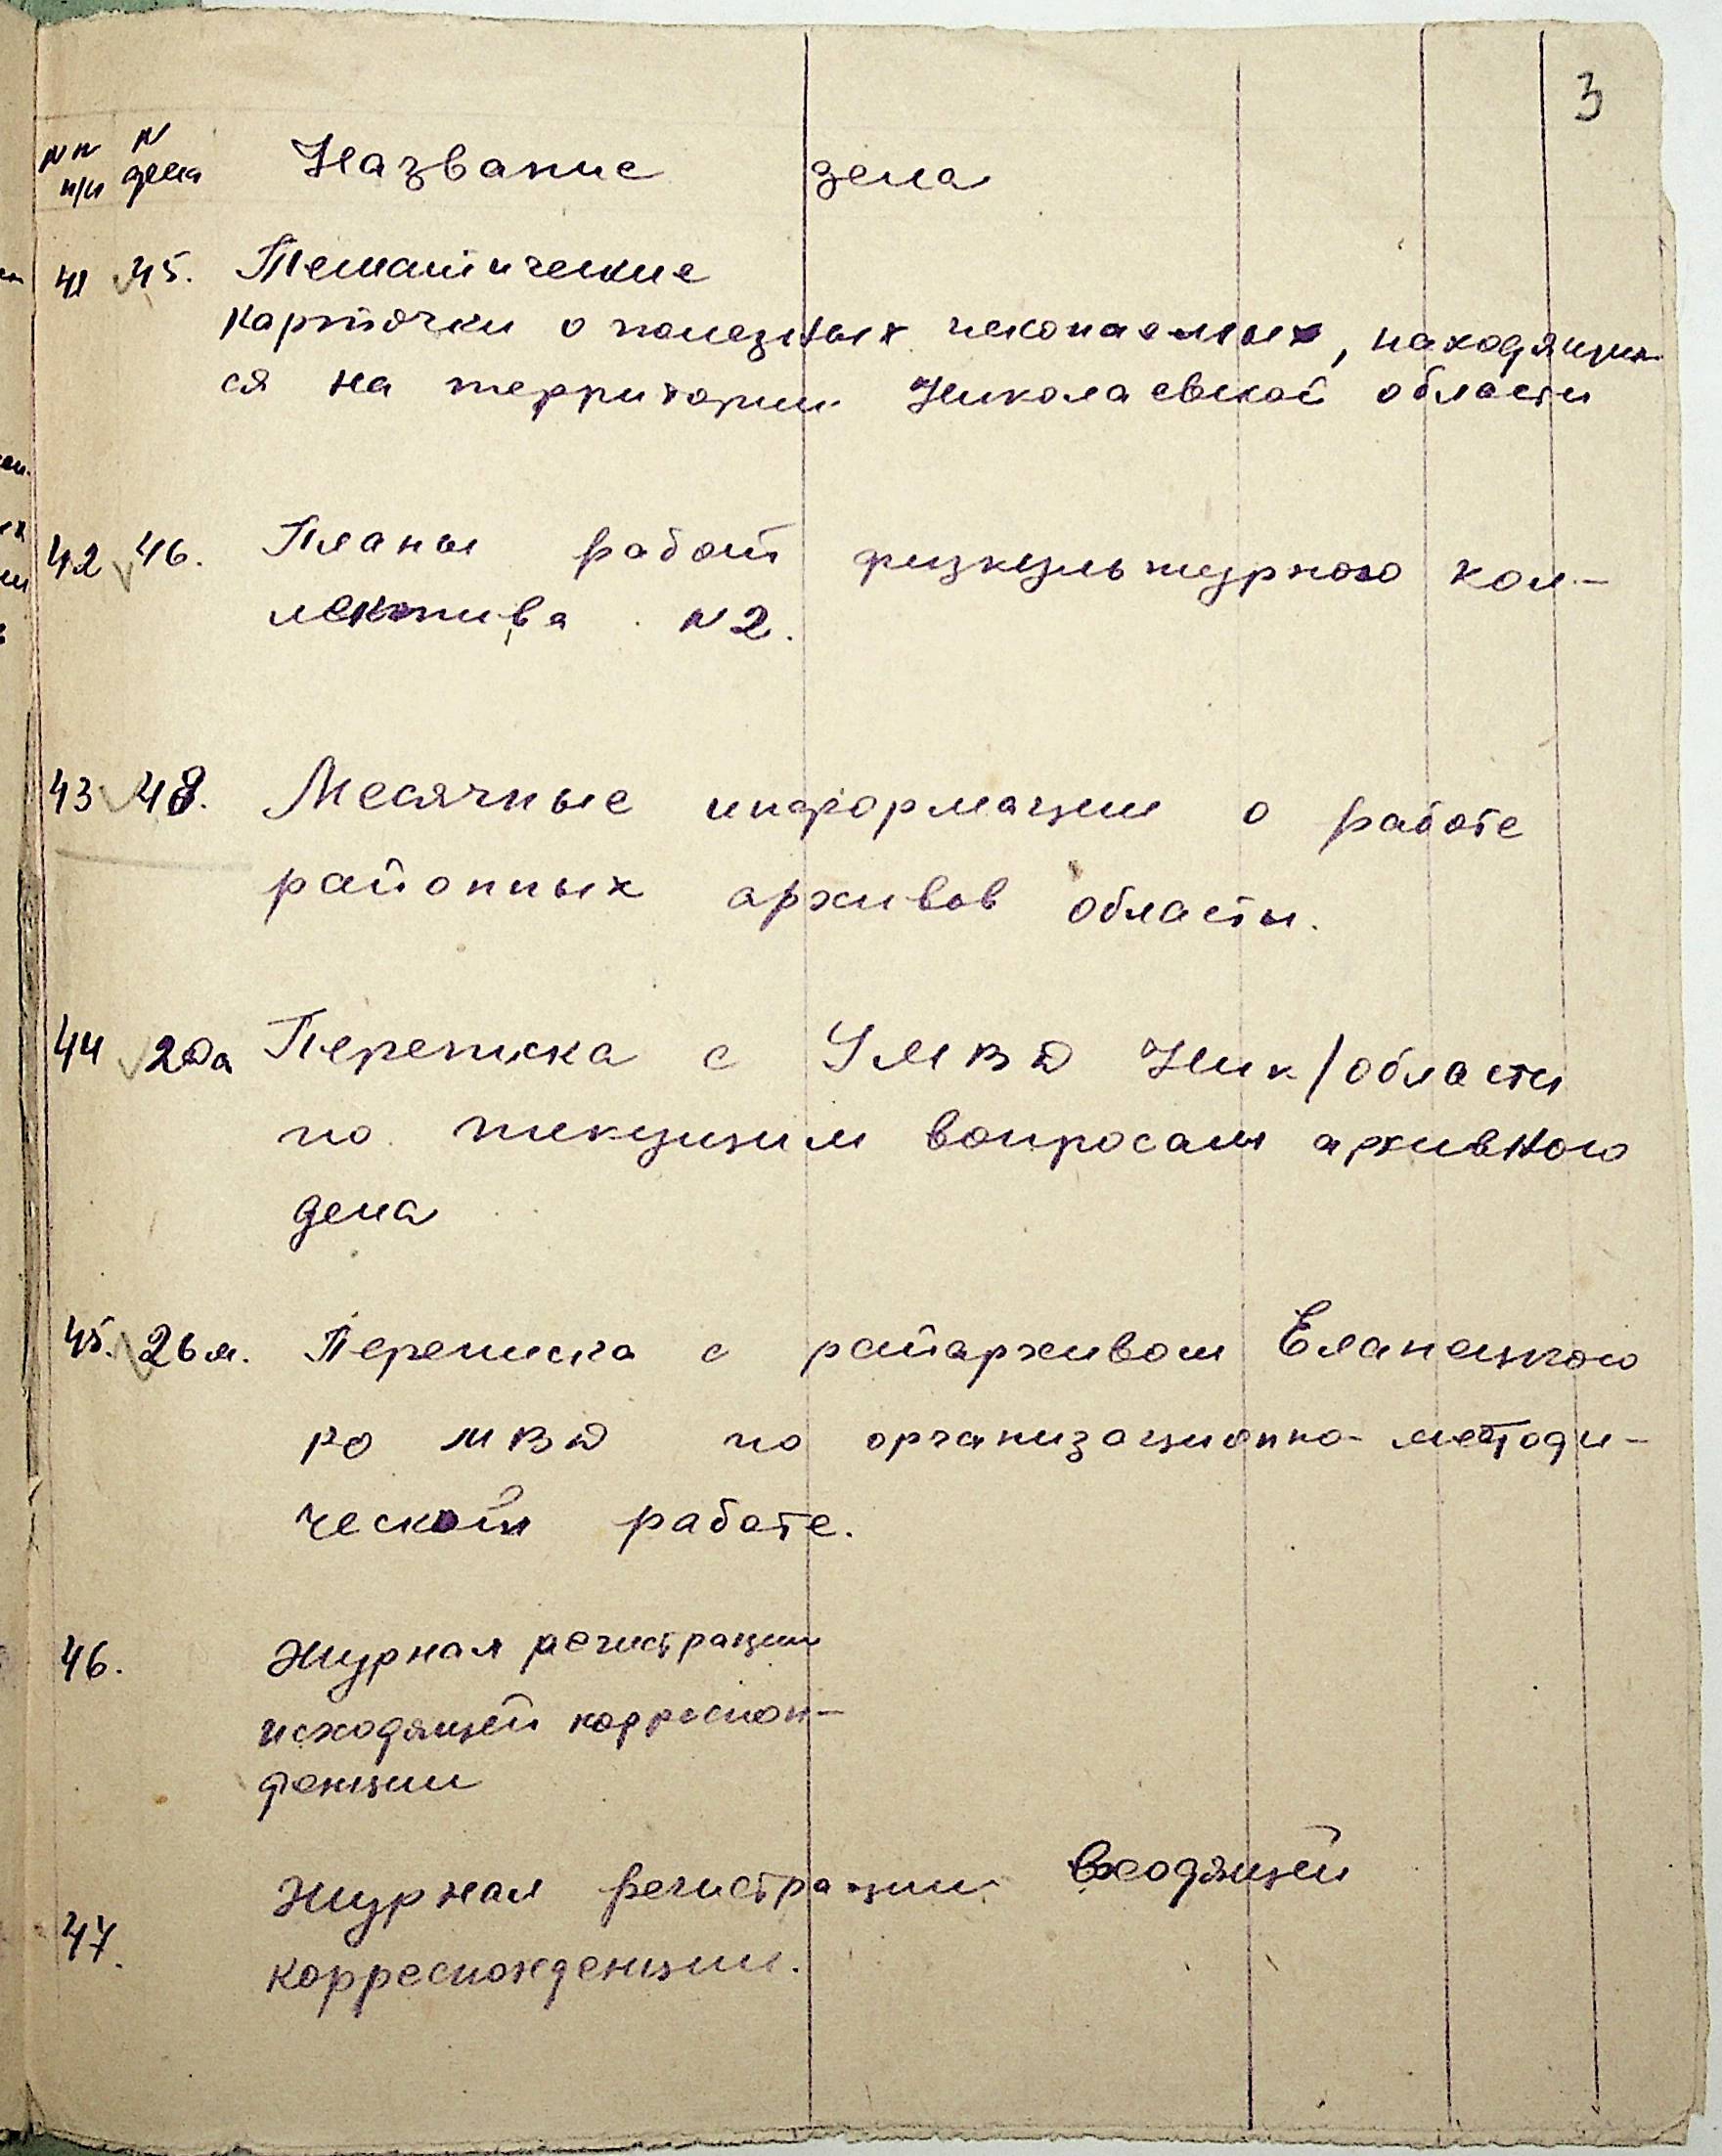 3
NN п/п N дела Название дела
41 45. Тематические
карточки о полезных ископаемых, находящих
ся на территории Николаевской области
42 46. Планы работ физкультурного кол-
лектива N2.
43 48. Месячные информации о работе
районных архивов области.
44 20а Переписка с УМВД Ник/области
по текущим вопросам архивного
дела
45. 26м. Переписка с райархивом Еланецкого
РО МВД по организационно-методи-
ческой работе.
46. Журнал регистрации
исходящей корреспон-
денции
47. Журнал регистрации входящей
корреспонденции.